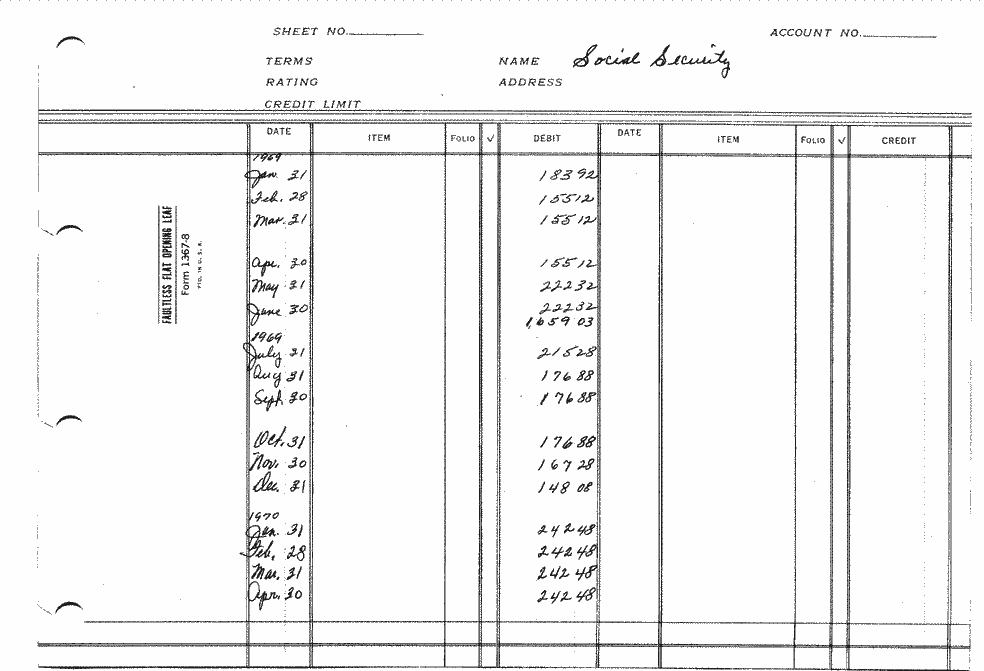 SHEET NO.
ACCOUNT NO.
TERMS
NAME Social Security
RATING
ADDRESS
CREDIT LIMIT
DATE ITEM FOLIO √ DEBIT DATE ITEM FOLIO √ CREDIT
1969
Jan. 31 183 92
Feb. 28 155 12
Mar. 31 155 12
Apr. 30 155 12
May 31 222 32
June 30 222 32
1,659 03
1969
July 31 215 28
Aug 31 176 88
Sept. 30 176 88
Oct. 31 176 88
Nov. 30 167 28
Dec. 31 148 08
1970
Jan. 31 242 48
Feb. 28 242 48
Mar. 31 242 48
Apr. 30 242 48
FAULTLESS FLAT OPENING LEAF
Form 1367-8